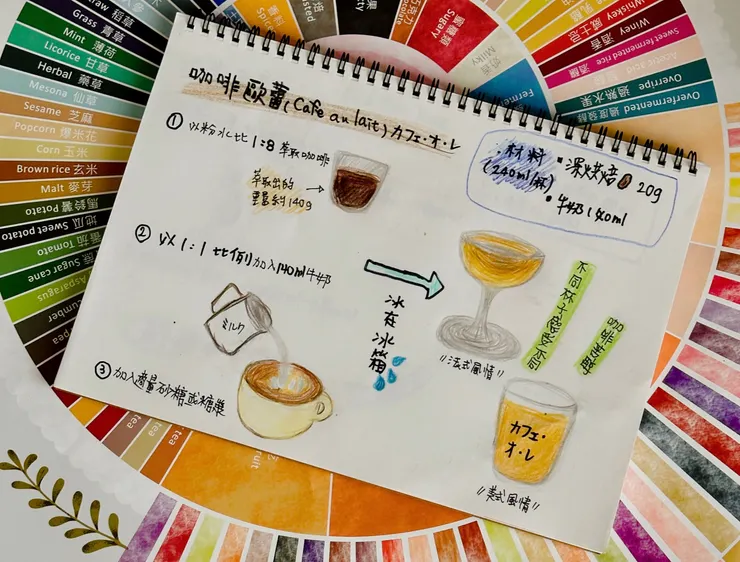 咖啡歐蕾(Cafe au lait)カフェ・オ・レ
① 以粉水比1:8 萃取咖啡
萃取出的
重量約140g
材料
(240ml/杯)
・深烘焙 20g
・牛奶140ml
② 以1:1比例加入140ml牛奶
ミルク
③ 加入適量砂糖或糖漿
冰在冰箱
"法式風情"
不同杯子感受不同
カフェ・
オ・レ
"美式風情"
Straw 稻草
Grass 青草
Mint 薄荷
Licorice 甘草
Herbal 藥草
Mesona 仙草
Sesame 芝麻
Popcorn 爆米花
Corn 玉米
Brown rice 玄米
Malt 麥芽
馬鈴薯 Potato
地瓜 Sweet potato
番茄 Tomato
Sugar cane
Asparagus
pea
tea
tea
Sugary 蜜糖類
Milky
Whiskey 威士忌
Winey 酒香
Sweet fermented rice 酒釀
Acetic acid
Overripe 過熟水果
Overfermented 過度發酵